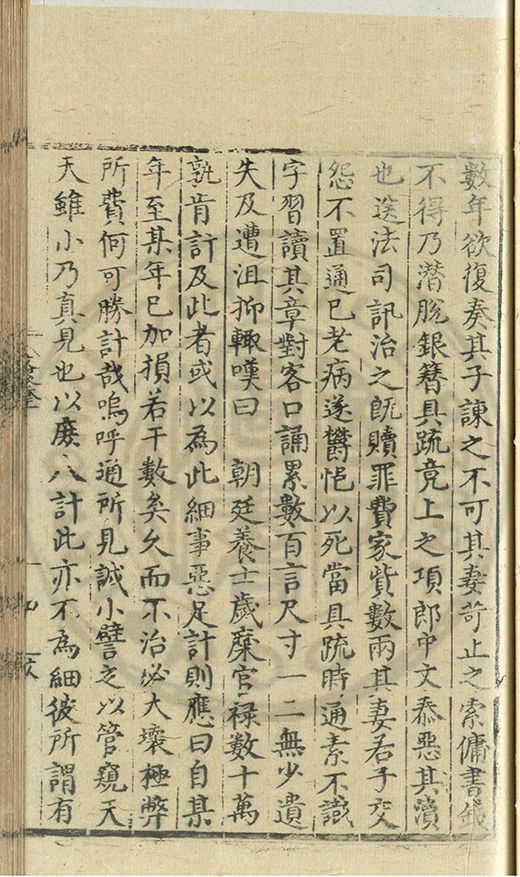 數年欲復奏其子諌之不可其妻苛止之索傭書錢
不得乃潛脫銀簪具䟽竟上之項郎中文泰惡其瀆
也送法司訊治之旣贖罪費家貲數兩其妻若子交
怨不置通已老病遂欝悒以死當具䟽時通素不識
字習讀其章對客口誦累數百言尺寸一二無少遺
失及遭沮抑輙嘆曰 朝廷養士歲糜官禄數十萬
孰肯計及此者或以為此細事惡足計則應曰自某
年至某年已加損若干數矣久而不治必大壞極弊
所費何可勝計哉嗚呼通所見誠小譬之以管窺天
天雖小乃真見也以废八計此亦不為細彼所謂有